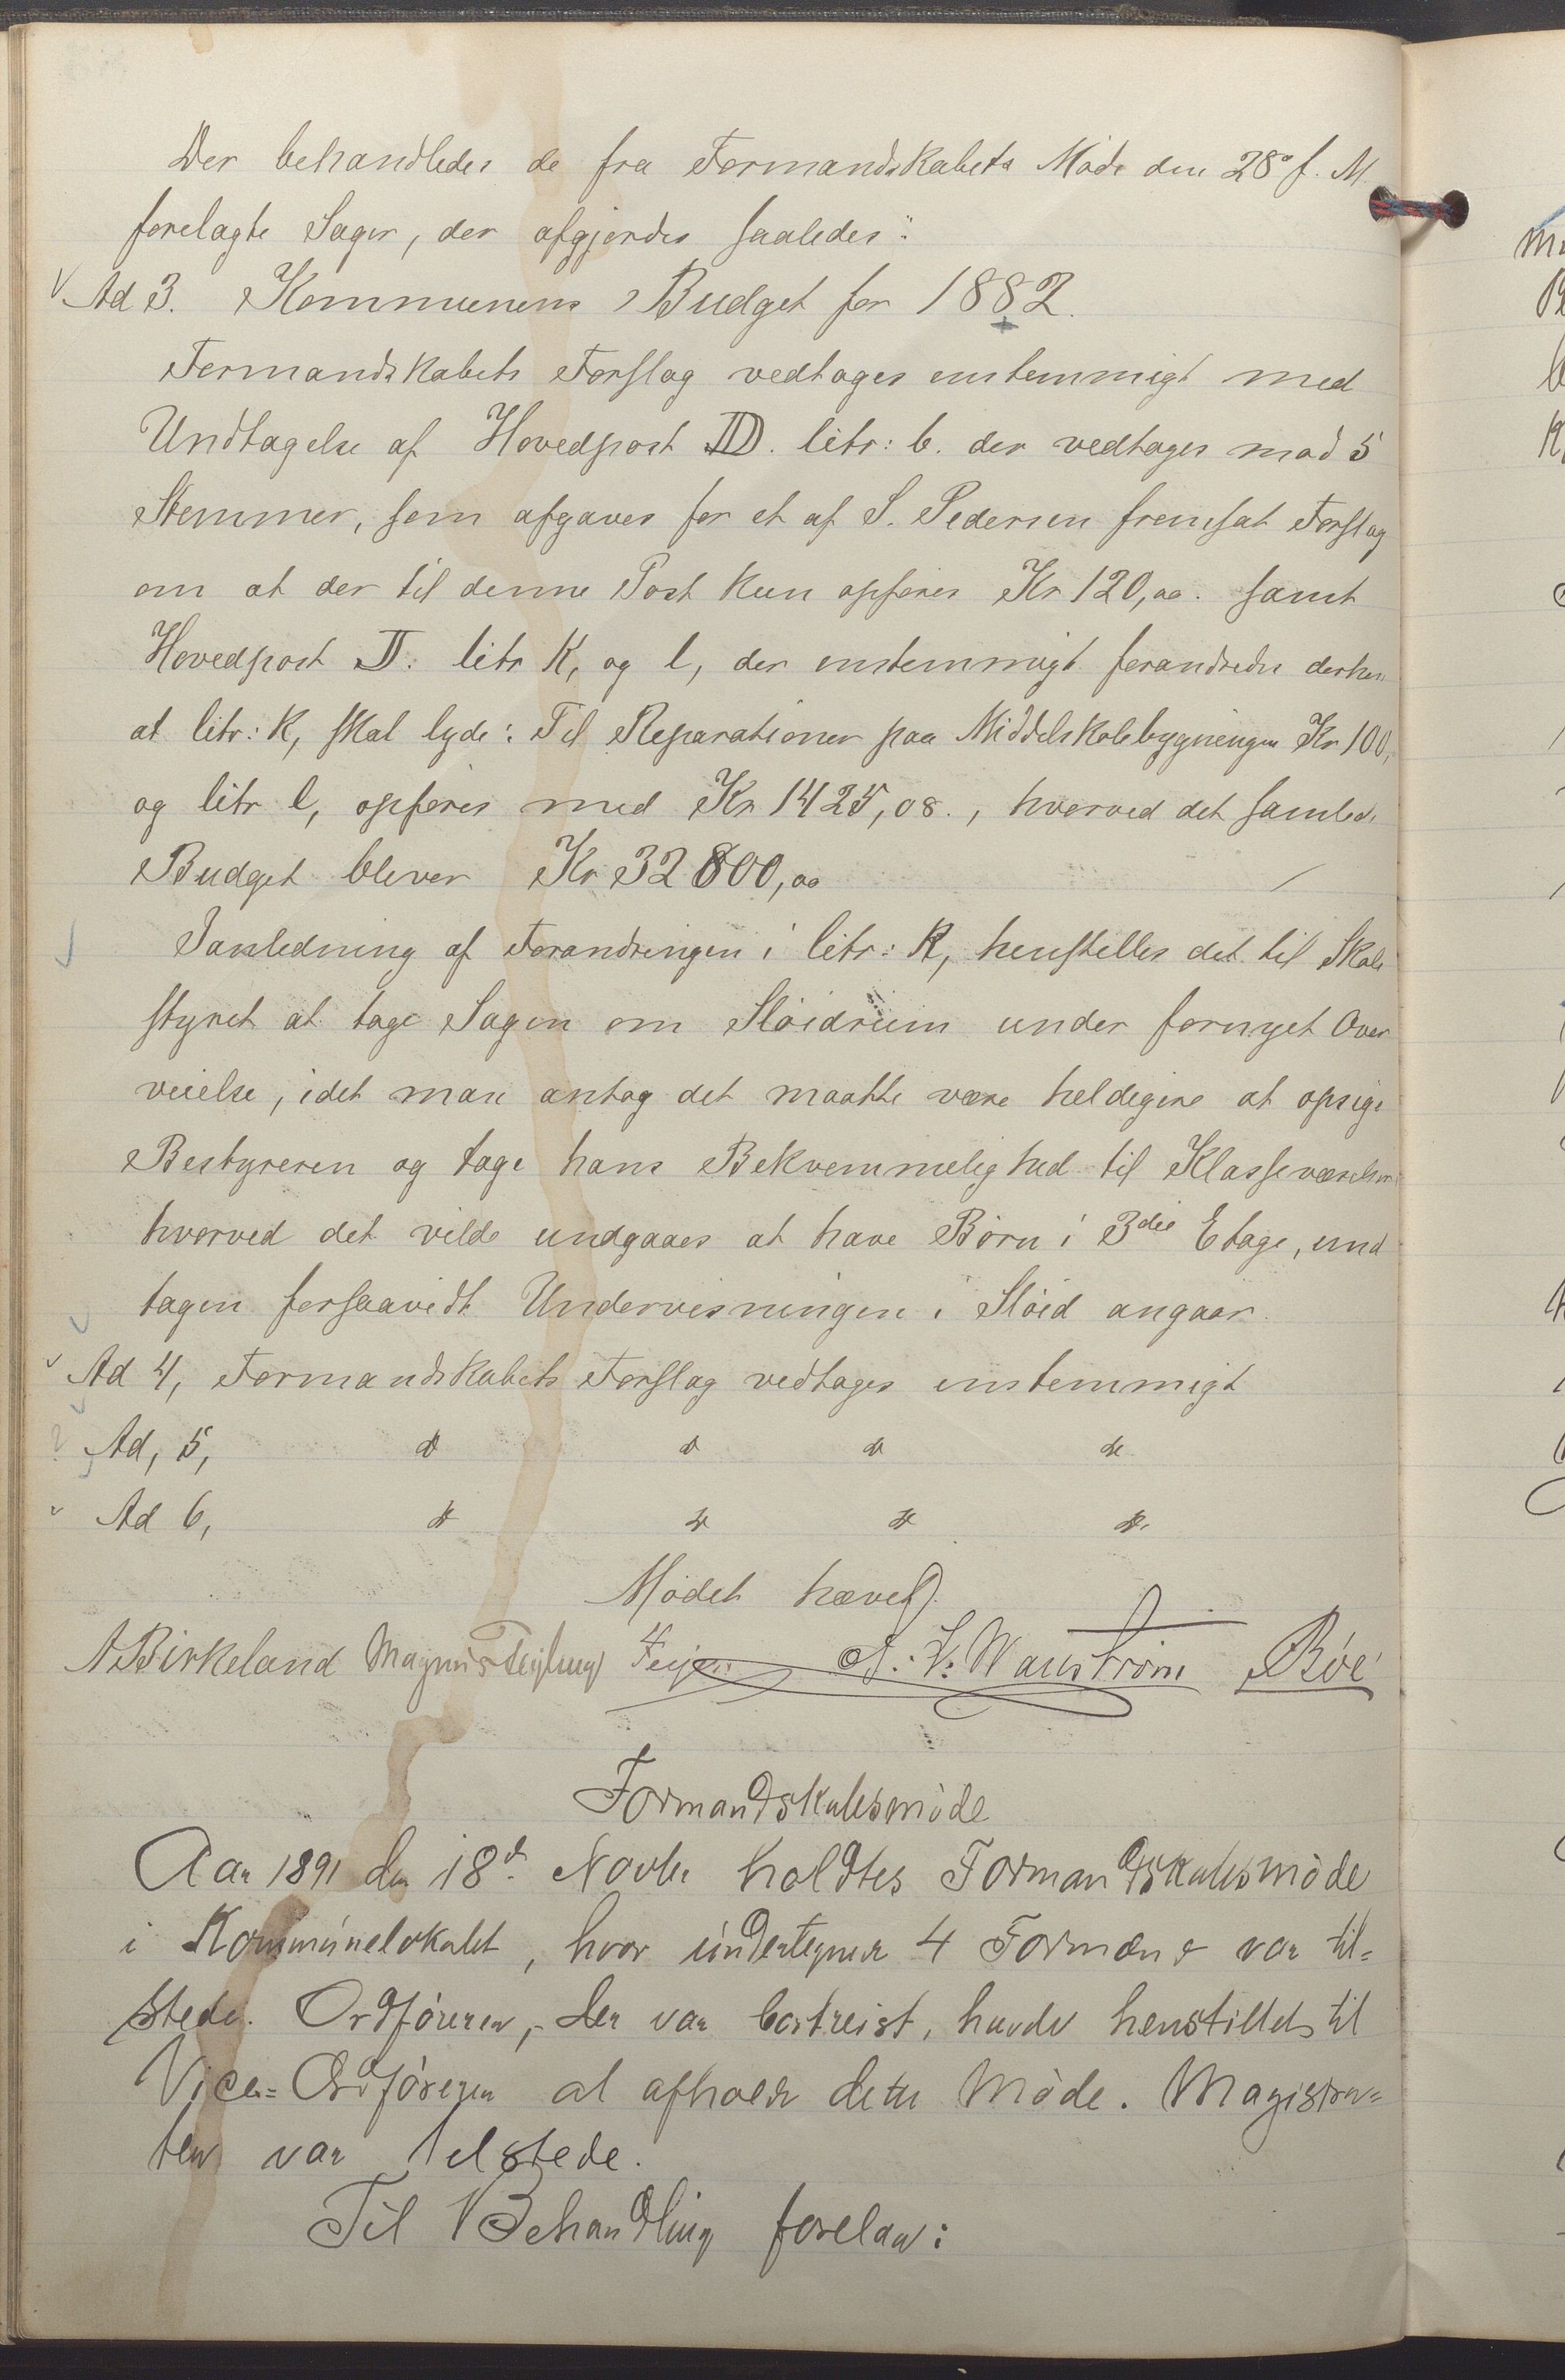 Der behandledes de fra Formandskabets Møde den 28de f. M.
forelagte Sager, der afgjordes saaledes:
Ad 3. Kommunens Budget for 1882.
Formandskabets Forslag vedtages enstemmigt med
Undtagelse af Hovedpost III. litr: b. der vedtages mod 5
Stemmer, som afgaves for et af S. Pedersen fremsat Forslag
om at der til denne Post kun opføres Kr 120,00. samt
Hovedpost II. litr K, og l, der enstemmigt forandredes derhen
at litr: K, skal lyde: Til Reparationer paa Middelskolebygningen Kr 100,
og litr l, opføres med Kr 1425,08., hvorved det samlede
Budget bliver Kr 32800,00
I anledning af Forandringen i litr: K, henstilles det til Skole
styret at tage Sagen om Sløidrum under fornyet Over
veielse, idet man antog det maatte være heldigere at opsige
Bestyreren og tage hans Bekvemmelighed til Klasseværelser
hvorved det vilde undgaaes at have Børn i 3die Etage, und
tagen forsaavidt Undervisningen i Sløid angaar.
Ad 4, Formandskabets Forslag vedtages enstemmigt
Ad, 5, do do do do
Ad 6, do do do do
Mødet hævet.
A Birkeland Magnus Feyling Feyer A. V. Wanstrøm Bøe
Formandskabsmøde
Aar 1891 den 18de Novbr holdtes Formandskabsmøde
i Kommunelokalet, hvor undertegnede 4 Formænd var til=
stede. Ordføreren, der var bortreist, havde henstillet til
Vice=Ordføreren at afholde dette Møde. Magistra=
ten var tilstede.
Til Behandling forelaa: